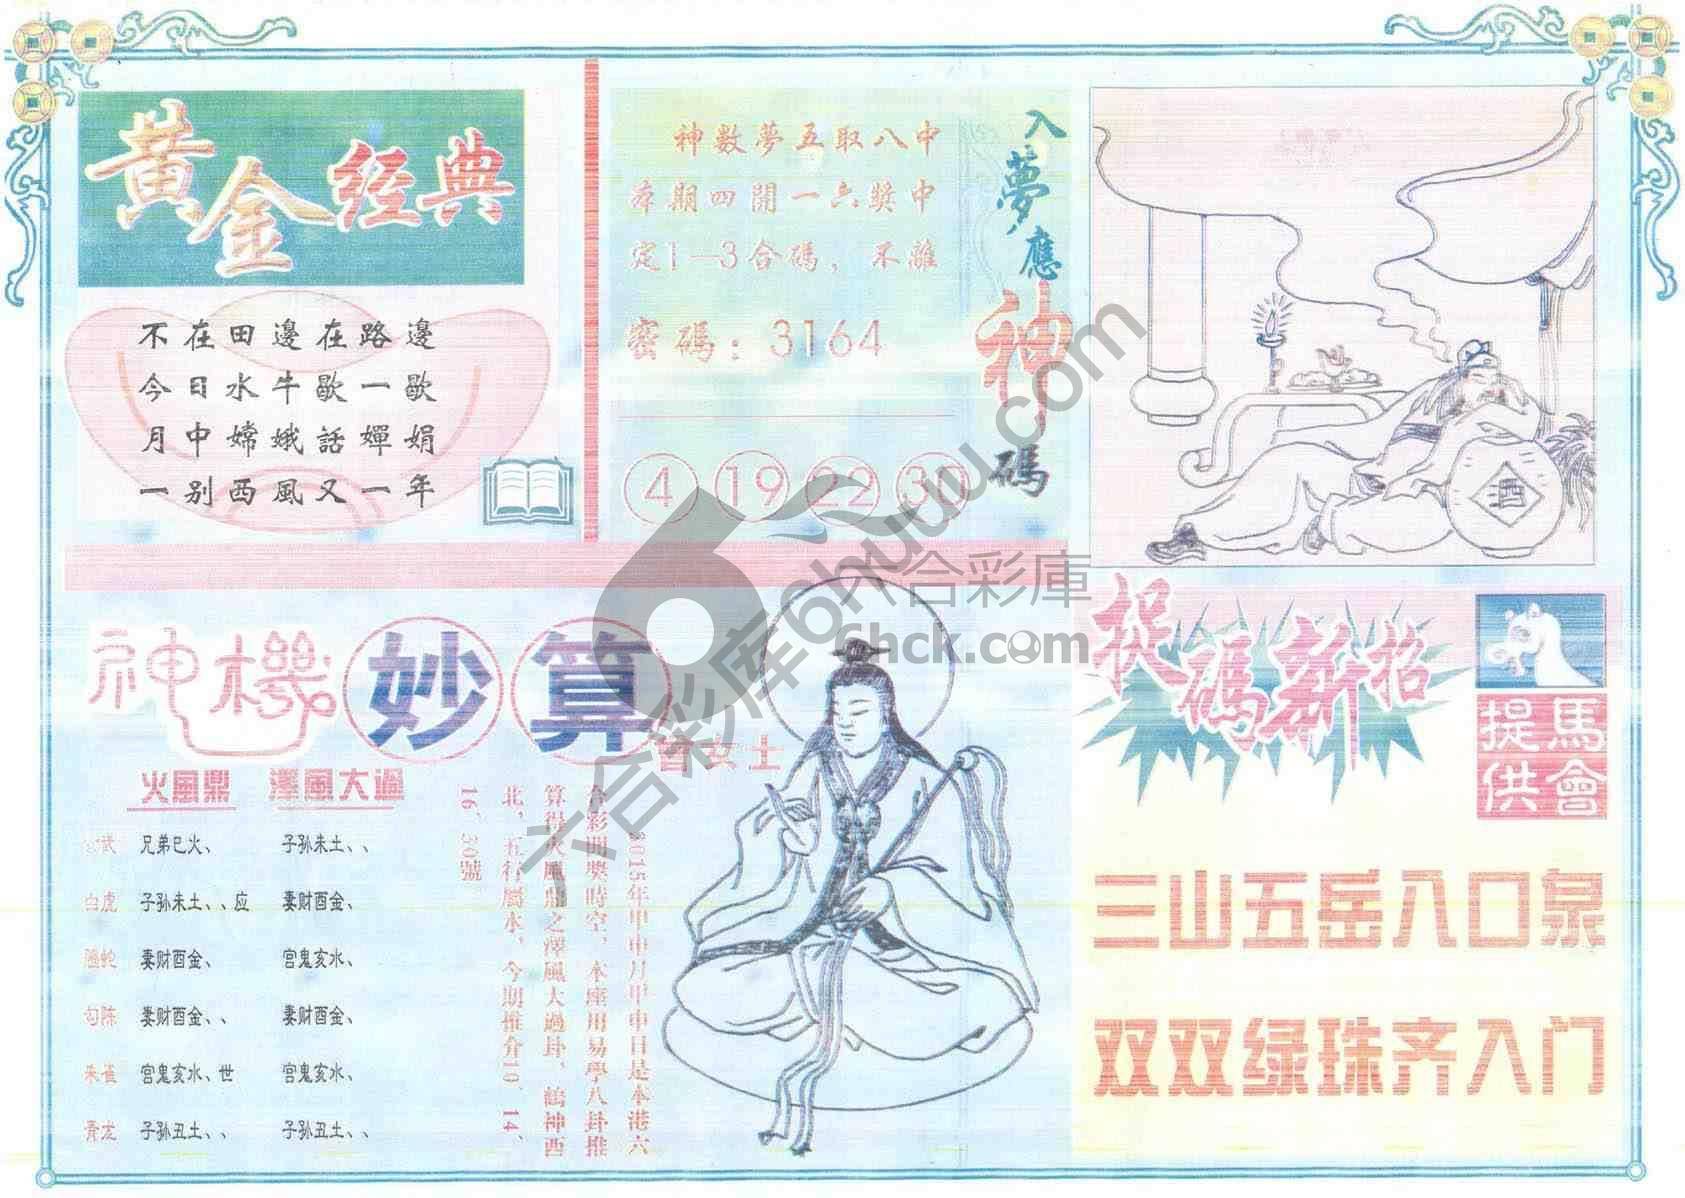 黃金经典
不在田邊在路邊
今日水牛歇一歇
月中嫦娥話嬋娟
一别西風又一年
神數夢五取八中
本期四開一六獎中
定1—3合碼，不離
密碼：3164
4 19 22 30
入夢應神碼
酒
神機妙算
女士
火風鼎 澤風大過
武 兄弟巳火、 子孙未土、、
白虎 子孙未土、、应 妻财酉金、
螣蛇 妻财酉金、 官鬼亥水、
勾陈 妻财酉金、、 妻财酉金、
朱雀 官鬼亥水、世 官鬼亥水、
青龙 子孙丑土、、 子孙丑土、、
2015年甲申月甲申日是本港六
合彩開獎時空，本座用易學八卦推
算得火風鼎之澤風大過卦，鶴神西
北，五行屬水，今期推介10、14、
16、30號
捉碼新招
馬會提供
三山五岳入口泉
双双绿珠齐入门
六合彩库6huuw.com
六合彩庫
6hck.com